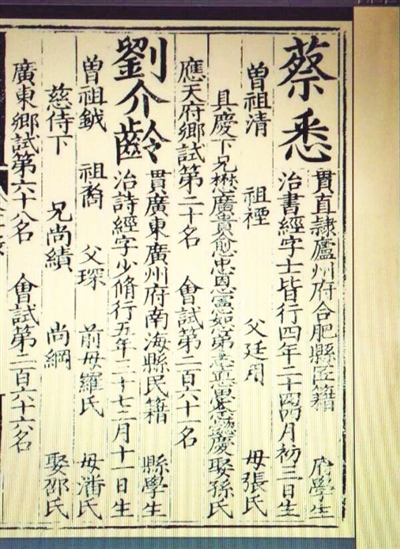 蔡悉
貫直隷廬州府合肥縣匠籍 府學生
治書經字士皆行四年二十四四月初三日生
曾祖清 祖禋 父廷用 母張氏
具慶下兄懋廣貴愈忠恩憲如弟慶娶孫氏
應天府鄉試第二十名 會試第二百六十一名
劉介齡
貫廣東廣州府南海縣民籍 縣學生
治詩經字少脩行五年二十七二月十一日生
曾祖鉞 祖裔 父琛 前母羅氏 母潘氏
慈侍下 兄尚績 尚綱 娶邵氏
廣東鄉試第六十八名 會試第二百六十六名